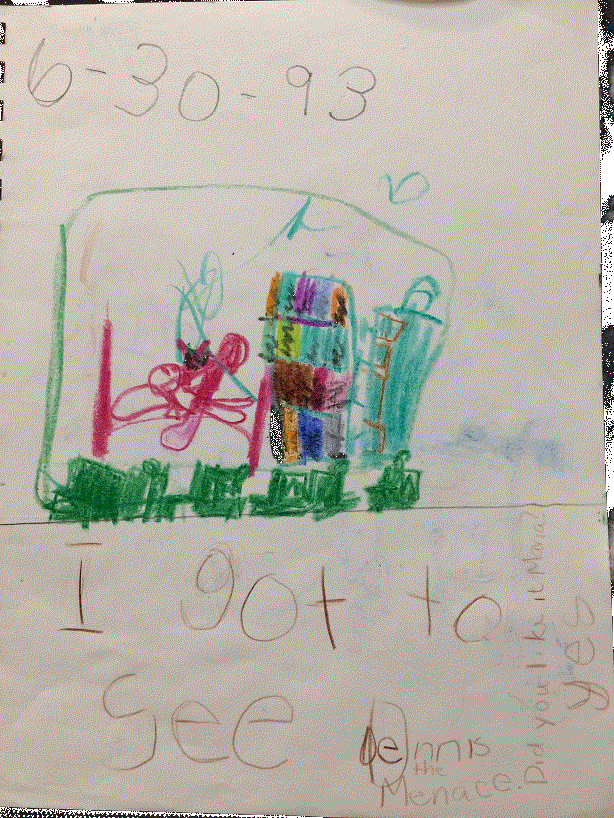 6-30-93
I got to
see Dennis
the
Menace.
Did you like it Mara?
yes